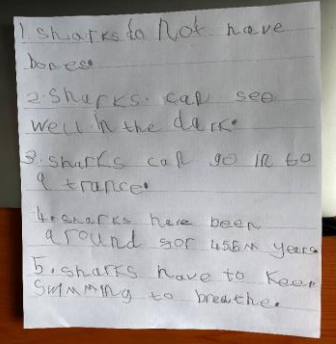 1. sharks do not have
bones.
2. Sharks. can see
well in the dark.
3. sharks can go in to
a trance.
4. sharks have been
around for 455M years
5. sharks have to keep
swimming to breathe.